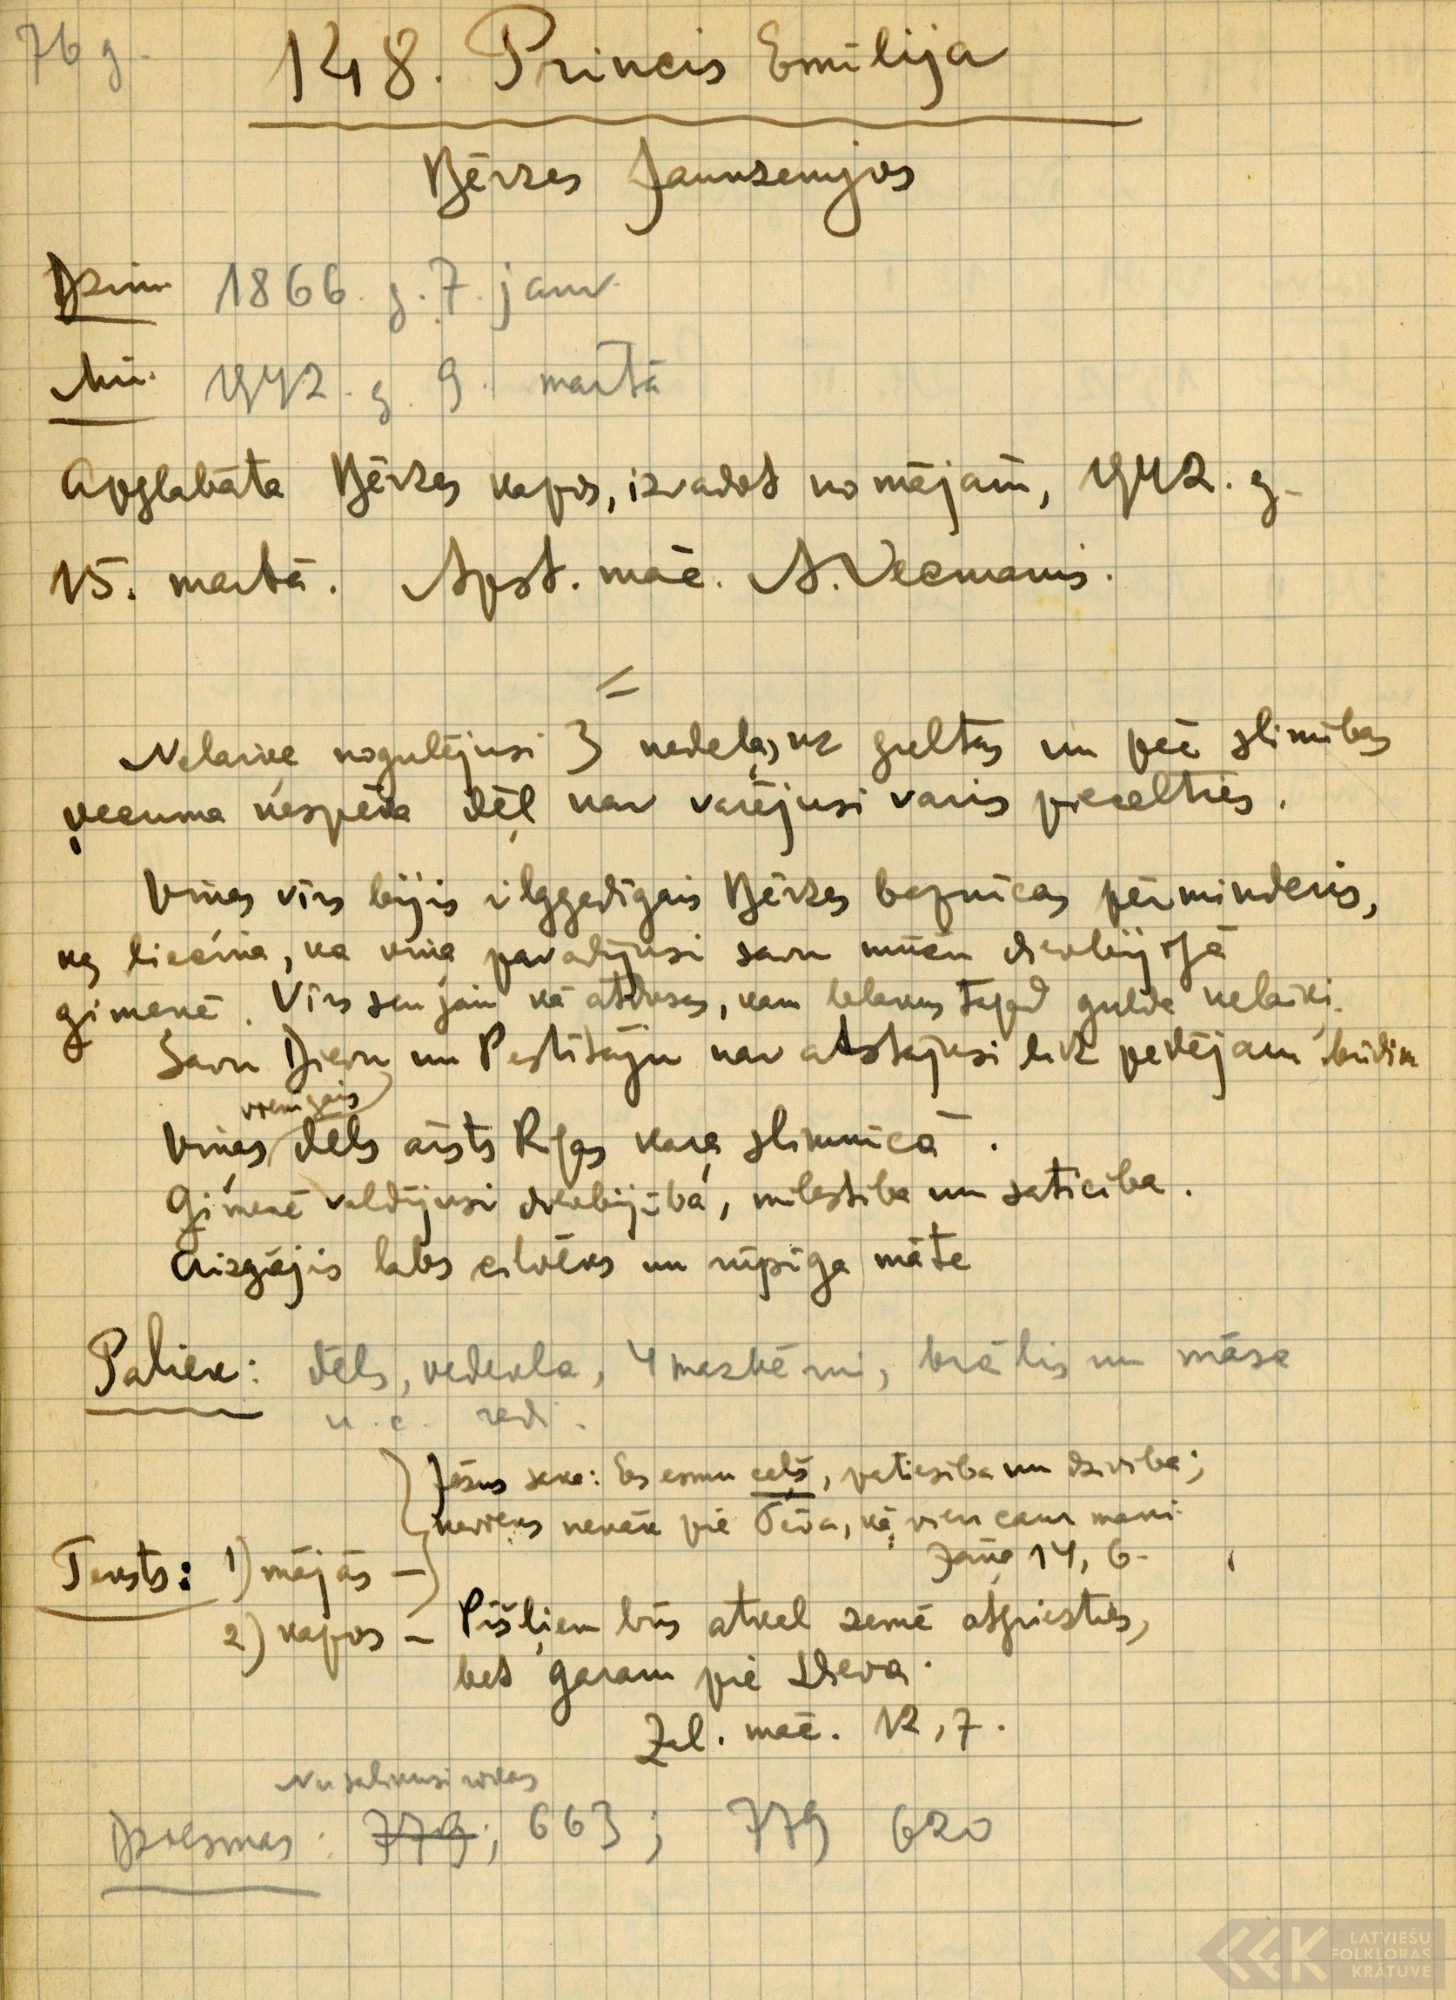 76 g.
148. Princis Emīlija
Bērzes Jaunzemjos
Dzim 1866. g. 7. janv.
Mir. 1942. g. 9. martā
Apglabāta Bērzes kapos, izvadot no mājām, 1942. g.
15. martā. Apst. māc. A. Vecmanis.
Nelaiķe nogulējusi 3 nedeļas uz gultas un pēc slimības
vecuma nespēka dēļ nav varējusi vairs piecelties.
Viņas vīrs bijis ilggadīgais Bērzes baznīcas pērminderis,
kas liecina, ka viņa pavadījusi savu mūžu dievbijīgā
ģimenē. Vīrs jau kā atdusas, kam blakus tapat gulda nelaiķi.
Savu Dievu un Pestītāju nav atstājusi līdz pedējam brīdim
vienīgais
Viņas dēls ārsts Rīgas kara slimnīcā.
Ģimenē valdījusi dievbijība, mīlestība un saticība.
Aizgājis labs cilvēks un rūpīga māte
Paliek: dēls, vedekla, 4 mazbērni, brālis un māsa
u. c. radi.
Jēzus saka: Es esmu ceļš, patiesība un dzīvība;
neviens nenāk pie Tēva, kā vien caur mani.
Jāņa 14, 6.
Teksts: 1) mājās –
2) kapos – Pīšļiem būs atkal zemē atgriezties,
bet garam pie Dieva.
Zal. māc. 12, 7.
Dziesmas: 779; 663; 779 620
LATVIEŠU
FOLKLORAS
KRĀTUVE